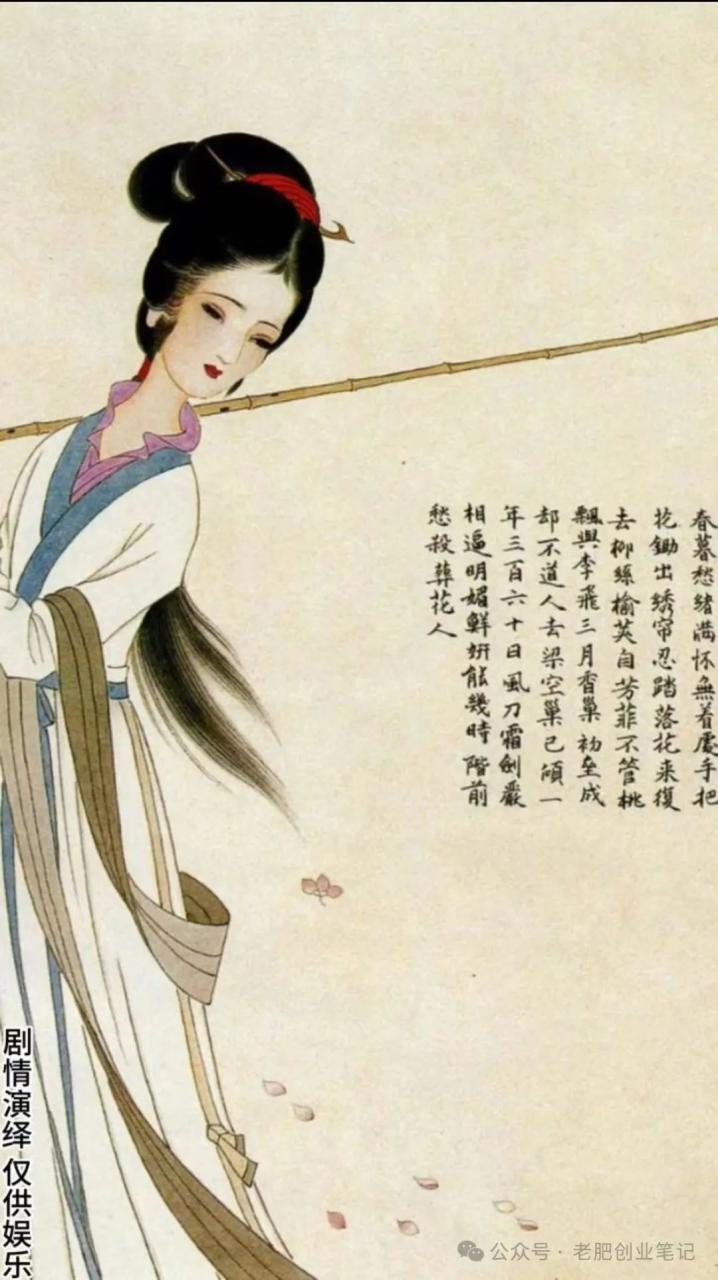 春暮愁緒満怀無着處手把
花鋤出綉帘忍踏落花来復
去柳絲榆荚自芳菲不管桃
飄與李飛三月香巢初壘成
却不道人去梁空巢已傾一
年三百六十日風刀霜劍嚴
相逼明媚鮮妍能幾時階前
愁殺葬花人
剧情演绎 仅供娱乐
公众号·老肥创业笔记